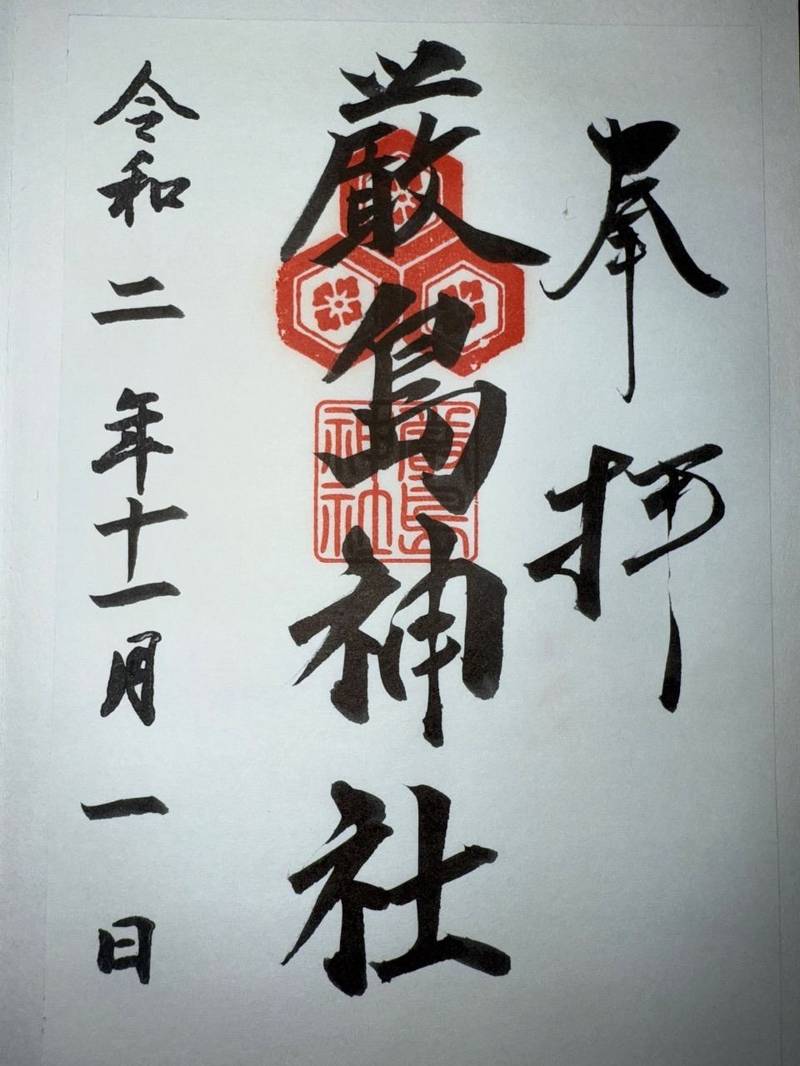 奉拝
厳島神社
嚴島神社
令和二年十一月一日